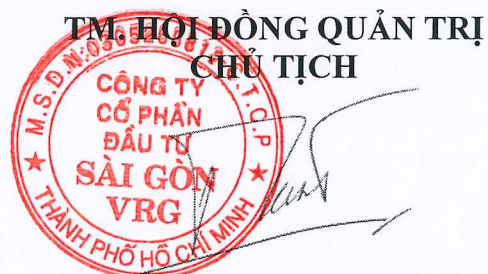 TM. HỘI ĐỒNG QUẢN TRỊ
CHỦ TỊCH
CÔNG TY
CỔ PHẦN
ĐẦU TƯ
SÀI GÒN
VRG
THÀNH PHỐ HỒ CHÍ MINH